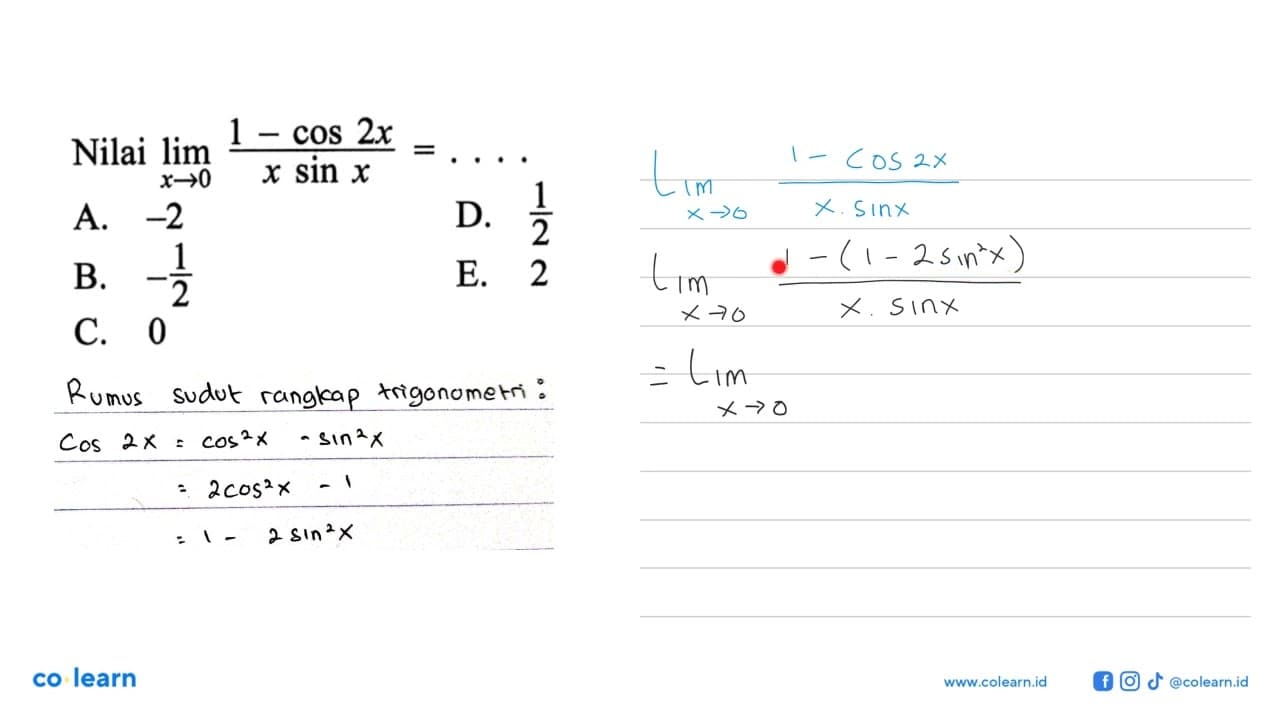 Nilai lim x→0 (1 – cos 2x)/(x sin x) = . . . .
A. –2
B. –1/2
C. 0
D. 1/2
E. 2
Rumus sudut rangkap trigonometri :
Cos 2x = cos²x - sin²x
= 2cos²x - 1
= 1 - 2 sin²x
Lim x→0 (1 - cos 2x)/(x . sinx)
Lim x→0 (1 - (1 - 2 sin²x))/(x . sinx)
= Lim x→0
co·learn
www.colearn.id
@colearn.id